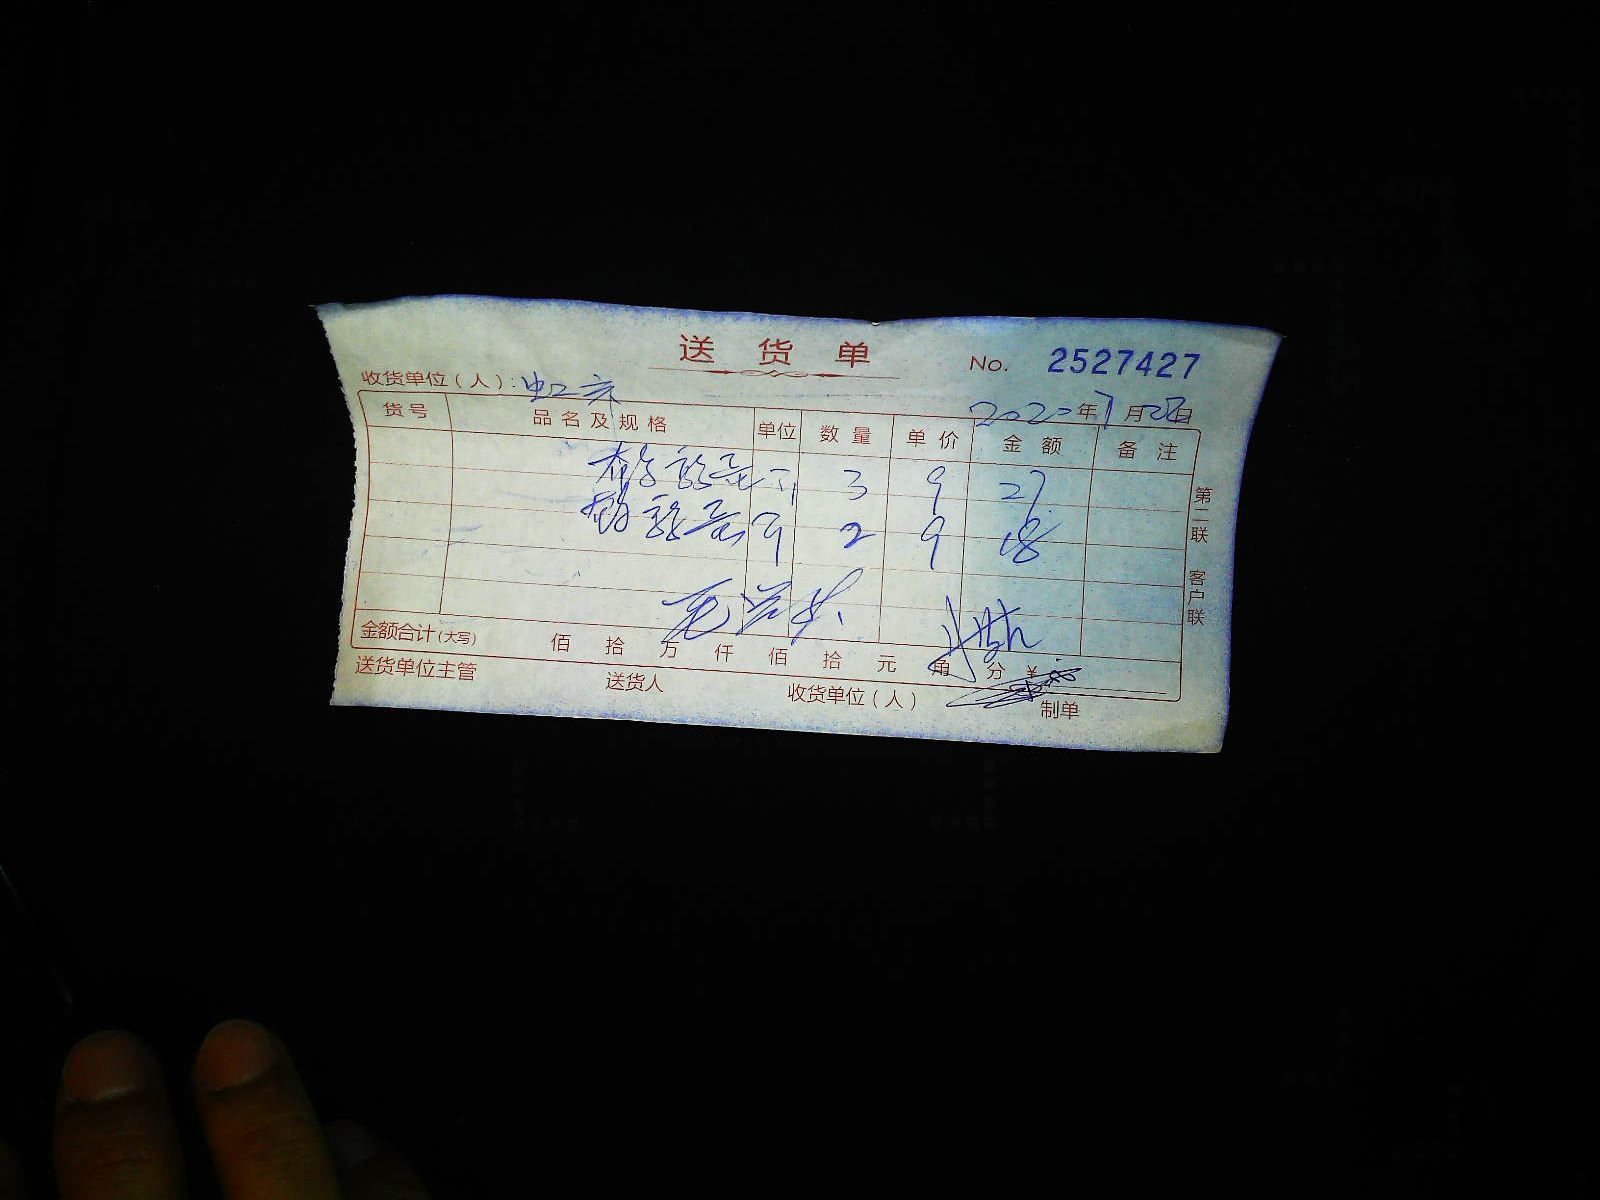 送货单
No. 2527427
收货单位（人）：虹云
2020年7月28日
货号 品名及规格 单位 数量 单价 金额 备注
3 9 27
2 9 18
第二联 客户联
金额合计(大写) 佰 拾 万 仟 佰 拾 元 角 分 ¥
送货单位主管 送货人 收货单位（人） 制单